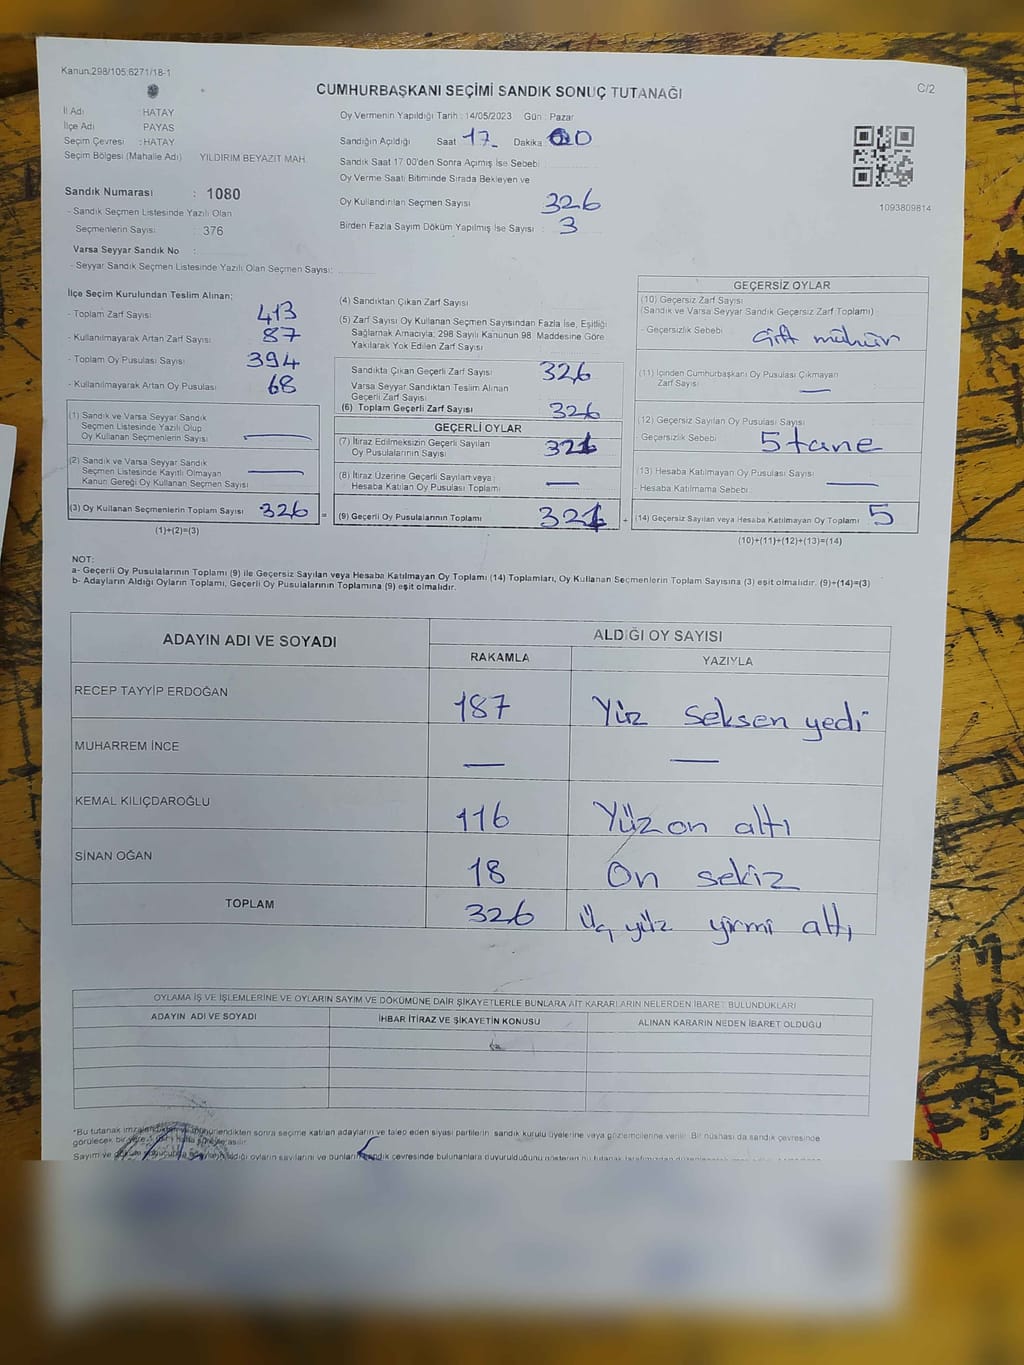 Kanun:298/105,6271/18-1
C/2
CUMHURBAŞKANI SEÇİMİ SANDIK SONUÇ TUTANAĞI
İl Adı : HATAY
İlçe Adı : PAYAS
Seçim Çevresi : HATAY
Seçim Bölgesi (Mahalle Adı) YILDIRIM BEYAZIT MAH.
Sandık Numarası : 1080
- Sandık Seçmen Listesinde Yazılı Olan
Seçmenlerin Sayısı : 376
Varsa Seyyar Sandık No :
- Seyyar Sandık Seçmen Listesinde Yazılı Olan Seçmen Sayısı:
Oy Vermenin Yapıldığı Tarih : 14/05/2023 Gün : Pazar
Sandığın Açıldığı Saat 17 Dakika 00
Sandık Saat 17.00'den Sonra Açımış İse Sebebi
Oy Verme Saati Bitiminde Sırada Bekleyen ve
Oy Kullandırılan Seçmen Sayısı 326
Birden Fazla Sayım Döküm Yapılmış İse Sayısı : 3
1093809814
İlçe Seçim Kurulundan Teslim Alınan;
- Toplam Zarf Sayısı 413
- Kullanılmayarak Artan Zarf Sayısı 87
- Toplam Oy Pusulası Sayısı 394
- Kullanılmayarak Artan Oy Pusulası 68
(1) Sandık ve Varsa Seyyar Sandık
Seçmen Listesinde Yazılı Olup
Oy Kullanan Seçmenlerin Sayısı —
(2) Sandık ve Varsa Seyyar Sandık
Seçmen Listesinde Kayıtlı Olmayan
Kanun Gereği Oy Kullanan Seçmen Sayısı —
(3) Oy Kullanan Seçmenlerin Toplam Sayısı 326 =
(1)+(2)=(3)
(4) Sandıktan Çıkan Zarf Sayısı
(5) Zarf Sayısı Oy Kullanan Seçmen Sayısından Fazla İse, Eşitliği
Sağlamak Amacıyla; 298 Sayılı Kanunun 98. Maddesine Göre
Yakılarak Yok Edilen Zarf Sayısı
Sandıkta Çıkan Geçerli Zarf Sayısı 326
Varsa Seyyar Sandıktan Teslim Alınan
Geçerli Zarf Sayısı
(6) Toplam Geçerli Zarf Sayısı 326
GEÇERLİ OYLAR
(7) İtiraz Edilmeksizin Geçerli Sayılan
Oy Pusulalarının Sayısı 321
(8) İtiraz Üzerine Geçerli Sayılan veya
Hesaba Katılan Oy Pusulası Toplamı —
(9) Geçerli Oy Pusulalarının Toplamı 321 +
GEÇERSİZ OYLAR
(10) Geçersiz Zarf Sayısı
(Sandık ve Varsa Seyyar Sandık Geçersiz Zarf Toplamı)
- Geçersizlik Sebebi : Çift mühür
(11) İçinden Cumhurbaşkanı Oy Pusulası Çıkmayan
Zarf Sayısı —
(12) Geçersiz Sayılan Oy Pusulası Sayısı
Geçersizlik Sebebi : 5 tane
(13) Hesaba Katılmayan Oy Pusulası Sayısı
- Hesaba Katılmama Sebebi —
(14) Geçersiz Sayılan veya Hesaba Katılmayan Oy Toplamı 5
(10)+(11)+(12)+(13)=(14)
NOT:
a- Geçerli Oy Pusulalarının Toplamı (9) ile Geçersiz Sayılan veya Hesaba Katılmayan Oy Toplamı (14) Toplamları, Oy Kullanan Seçmenlerin Toplam Sayısına (3) eşit olmalıdır. (9)+(14)=(3)
b- Adayların Aldığı Oyların Toplamı, Geçerli Oy Pusulalarının Toplamına (9) eşit olmalıdır.
ADAYIN ADI VE SOYADI
ALDIĞI OY SAYISI
RAKAMLA YAZIYLA
RECEP TAYYİP ERDOĞAN 187 Yüz seksen yedi
MUHARREM İNCE — —
KEMAL KILIÇDAROĞLU 116 Yüz on altı
SİNAN OĞAN 18 On sekiz
TOPLAM 326 Üç yüz yirmi altı
OYLAMA İŞ VE İŞLEMLERİNE VE OYLARIN SAYIM VE DÖKÜMÜNE DAİR ŞİKAYETLERLE BUNLARA AİT KARARLARIN NELERDEN İBARET BULUNDUKLARI
ADAYIN ADI VE SOYADI İHBAR İTİRAZ VE ŞİKAYETİN KONUSU ALINAN KARARIN NEDEN İBARET OLDUĞU
*Bu tutanak sonra seçime katılan adayların ve talep eden siyasi partilerin sandık kurulu üyelerine veya gözlemcilerine verilir. Bir nüshası da sandık çevresinde
görülecek bir yere
Sayım ve oyların sayılarını ve bunların sandık çevresinde bulunanlara duyurulduğunu gösteren